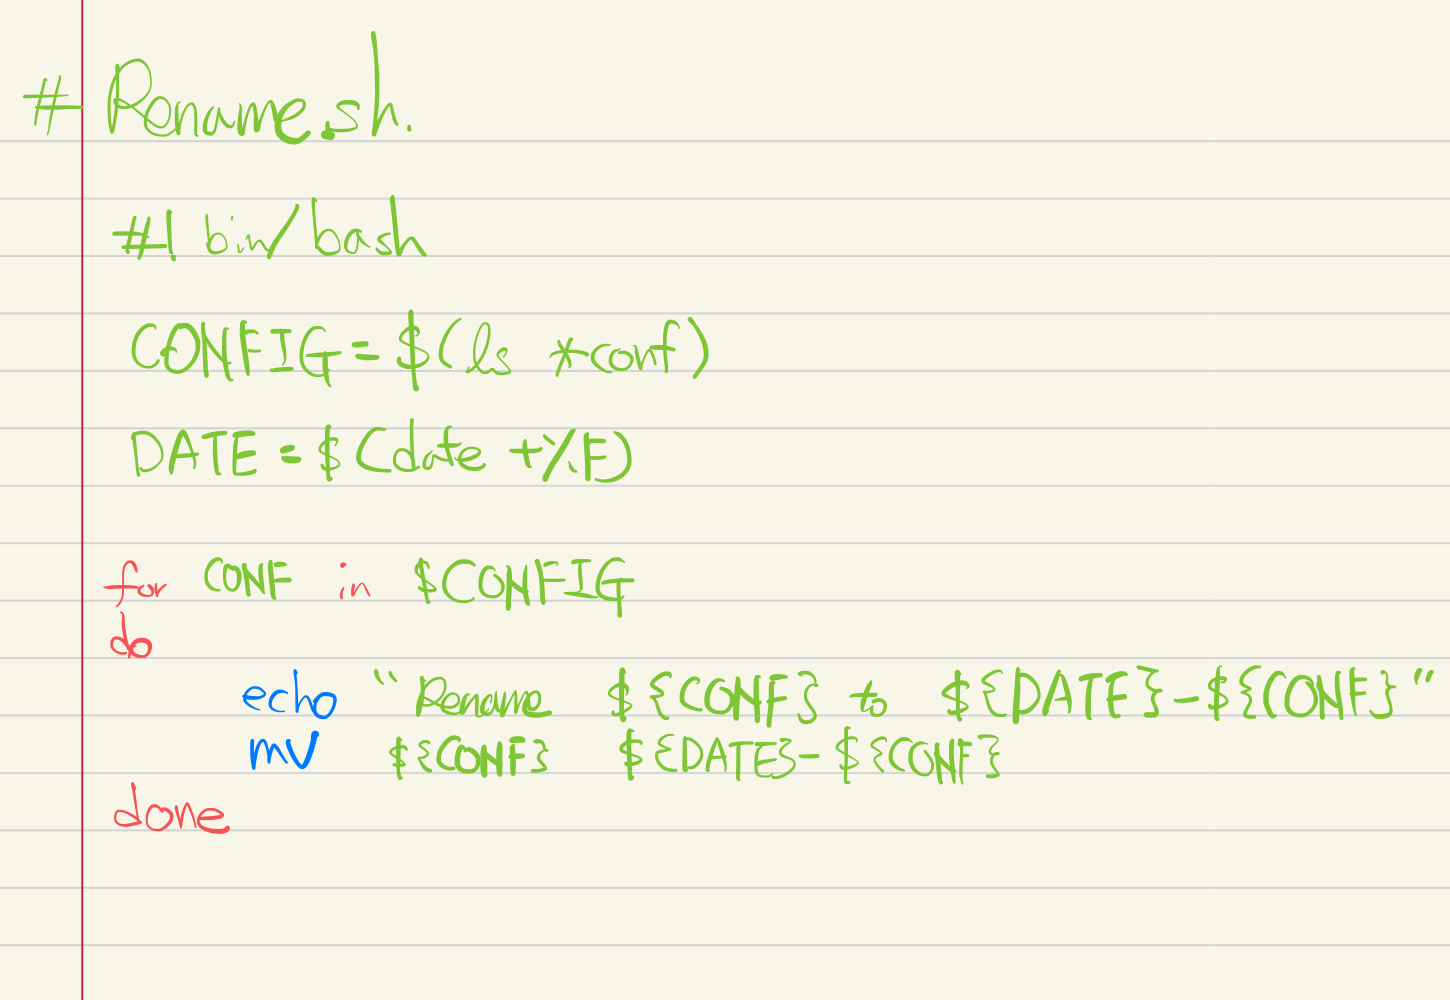 # Rename.sh.
#! bin/bash
CONFIG=$(ls *conf)
DATE=$(date +%F)
for CONF in $CONFIG
do
echo "Rename ${CONF} to ${DATE}-${CONF}"
mv ${CONF} ${DATE}-${CONF}
done